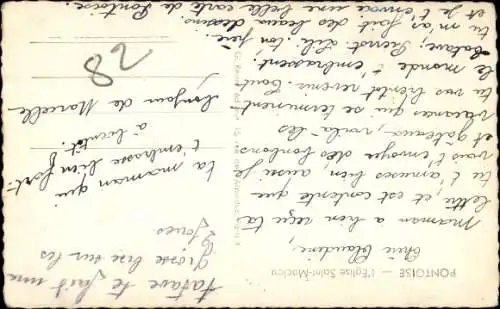 PONTOISE — L'Église Saint-Maclou
Chère Claudine,
maman a bien reçu ta
lettre, et est contente que
tu t'amuses bien aussi je
vais t'envoyer des bonbons
et gâteaux, voilà les
vacances qui se terminent
tu vas bientôt revenir. Tout
le monde t'embrassent
Lili. ton père.
tu m'as fait des beaux dessins
et je t'envoie une belle carte de Pontoise.
tatave te fait une
grosse bise sur les
joues
ta maman qui
t'embrasse bien fort.
à bientôt.
Bonjour de Marcelle
28